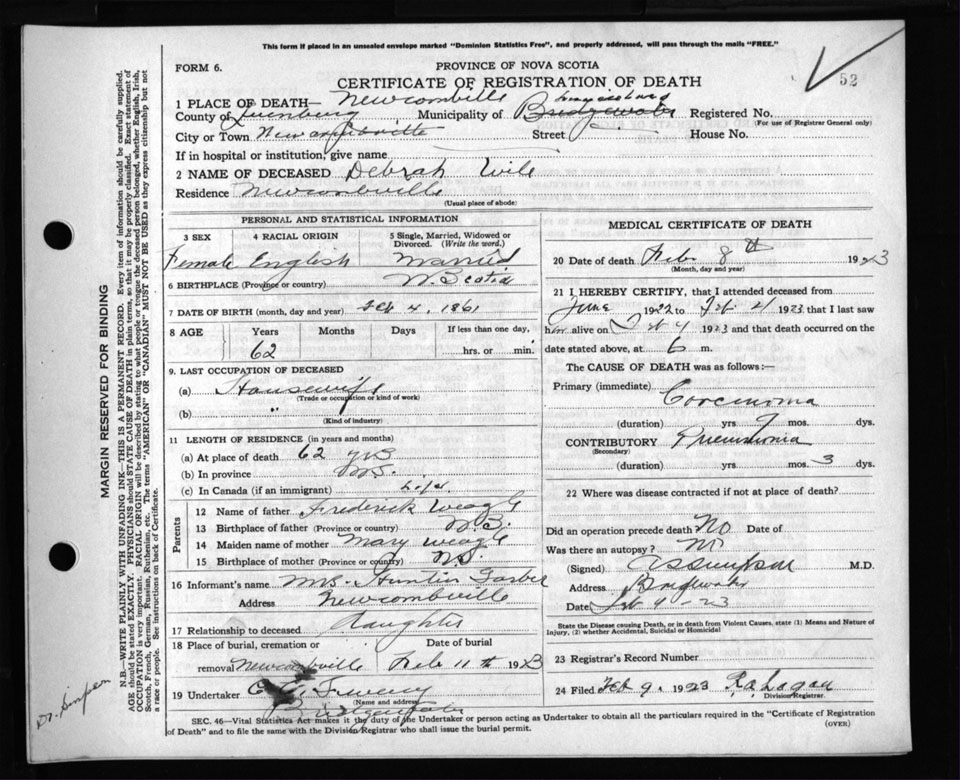 This form if placed in an unsealed envelope marked "Dominion Statistics Free", and properly addressed, will pass through the mails "FREE."
FORM 6.
PROVINCE OF NOVA SCOTIA
52
CERTIFICATE OF REGISTRATION OF DEATH
1 PLACE OF DEATH— Newcombville
County of Lunenburg Municipality of Bridgewater Registered No.
(For use of Registrar General only)
City or Town Newcombville Street House No.
If in hospital or institution, give name
2 NAME OF DECEASED Debrah Wile
Residence Newcombville
(Usual place of abode)
PERSONAL AND STATISTICAL INFORMATION
3 SEX 4 RACIAL ORIGIN 5 Single, Married, Widowed or Divorced. (Write the word.)
Female English Married
6 BIRTHPLACE (Province or country) N. Scotia
7 DATE OF BIRTH (month, day and year) 4, 1861
8 AGE Years Months Days If less than one day,
62 hrs. or min.
9. LAST OCCUPATION OF DECEASED
(a) Housewife
(Trade or occupation or kind of work)
(b) "
(Kind of industry)
11 LENGTH OF RESIDENCE (in years and months)
(a) At place of death 62 yrs
(b) In province
(c) In Canada (if an immigrant) Life
Parents
12 Name of father Frederick Weagle
13 Birthplace of father (Province or country) N.S.
14 Maiden name of mother Mary Weagle
15 Birthplace of mother (Province or country) NS
16 Informant's name Mrs. Huntin
Address Newcombville
17 Relationship to deceased daughter
18 Place of burial, cremation or Date of burial
removal Newcombville Feb 11th 1923
19 Undertaker
(Name and address)
Bridgewater
MEDICAL CERTIFICATE OF DEATH
20 Date of death Feb. 8th 1923
(Month, day and year)
21 I HEREBY CERTIFY, that I attended deceased from
June 1922 to Feb. 4 1923 that I last saw
her alive on Feb 4 1923 and that death occurred on
date stated above, at 6 m.
The CAUSE OF DEATH was as follows:—
Primary (immediate)
Carcinoma
(duration) yrs 7 mos. dys.
CONTRIBUTORY Pneumonia
(Secondary)
(duration) yrs mos. 3 dys.
22 Where was disease contracted if not at place of death?
Did an operation precede death No Date of
Was there an autopsy? No
(Signed) M.D.
Address Bridgewater
Date Feb 9 - 23
State the Disease causing Death, or in death from Violent Causes, state (1) Means and Nature of Injury, (2) whether Accidental, Suicidal or Homicidal
23 Registrar's Record Number
24 Filed Feb 9. 1923
Division Registrar.
SEC. 46—Vital Statistics Act makes it the duty of the Undertaker or person acting as Undertaker to obtain all the particulars required in the "Certificate of Registration
of Death" and to file the same with the Division Registrar who shall issue the burial permit.
(OVER)
MARGIN RESERVED FOR BINDING
N.B.—WRITE PLAINLY WITH UNFADING INK—THIS IS A PERMANENT RECORD. Every item of information should be carefully supplied.
AGE should be stated EXACTLY. PHYSICIANS should STATE CAUSE OF DEATH in plain terms, so that it may be properly classified. Exact statement of
OCCUPATION is very important. RACIAL ORIGIN will be described by stating to what people or tongue the deceased person belonged, whether English, Irish,
Scotch, French, German, Russian, Ruthenian, etc. The terms "AMERICAN" OR "CANADIAN" MUST NOT BE USED as they express citizenship but not
a race or people. See instructions on back of Certificate.